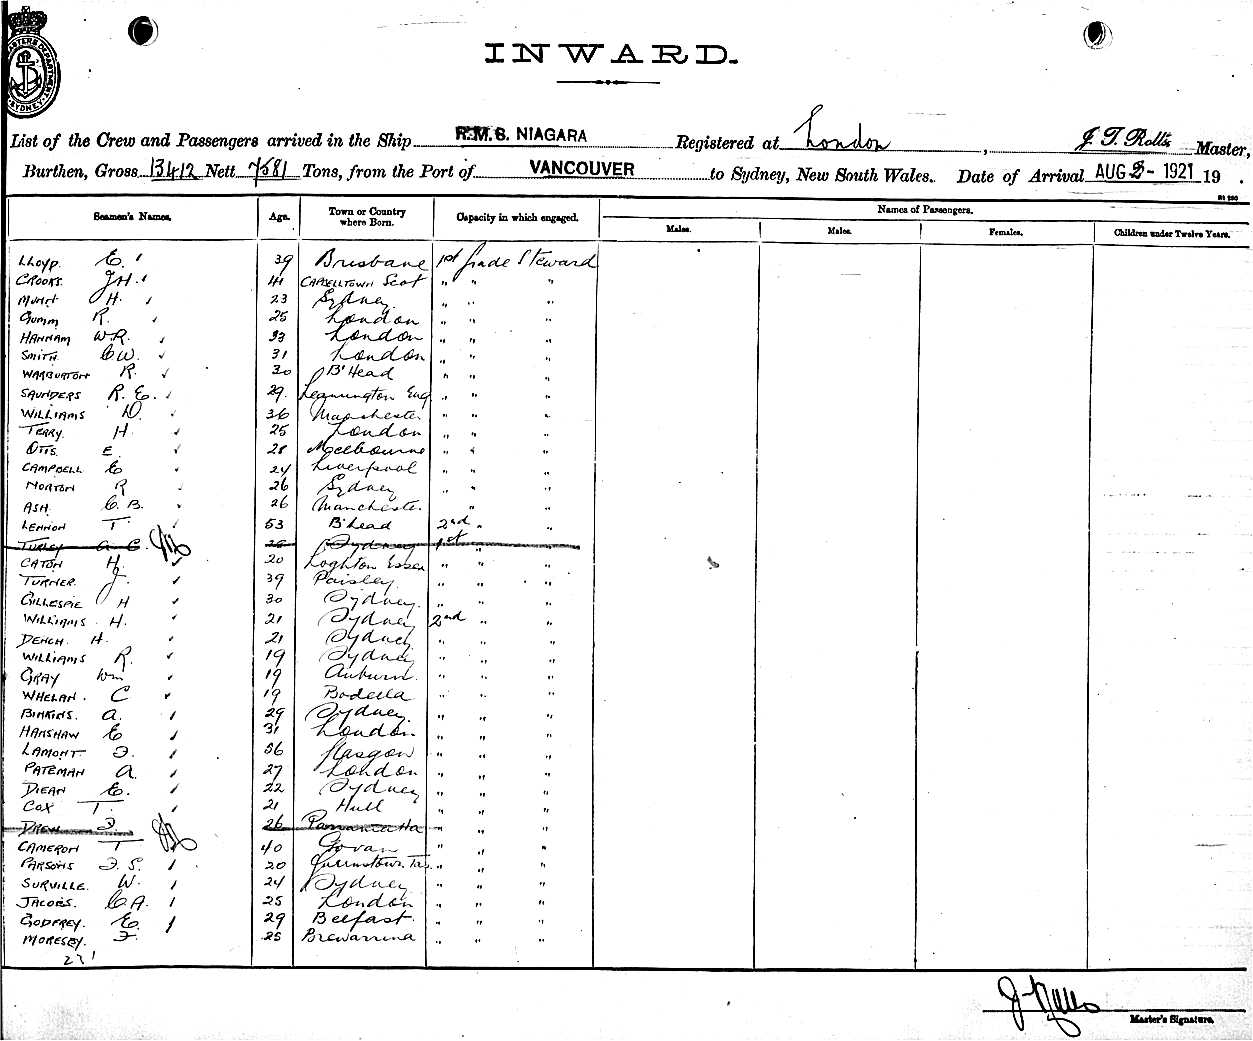 INWARD.
List of the Crew and Passengers arrived in the Ship R.M.S. NIAGARA Registered at London, J. T. Rolls Master,
Burthen, Gross 13412 Nett 7581 Tons, from the Port of VANCOUVER to Sydney, New South Wales. Date of Arrival AUG - 1921 19 .
Seamen's Names. Age. Town or Country where Born. Capacity in which engaged. Names of Passengers.
Males. Males. Females. Children under Twelve Years.
LLOYD. E. 39 Brisbane 1st grade Steward
CROOKS. J H. 41 CAMPBELLTOWN Scot " " "
H. 23 Sydney " " "
GUMM R. 25 London " " "
HANNAM W R. 33 London " " "
SMITH. C W. 31 London " " "
WARBURTON R. 30 B'Head " " "
SAUNDERS R. E. 29. Leamington Eng " " "
WILLIAMS D. 36 Manchester " " "
TERRY. H. 25 London " " "
OTIS. E. 28 Melbourne " " "
CAMPBELL C 24 Liverpool " " "
NORTON R 26 Sydney " " "
ASH. C. B. 26 Manchester. " "
LENNON T. 53 B'head 2nd " "
TURLEY 26 Sydney 1st " "
CATON H. 20 Loghton Essex " " "
TURNER. J. 39 Paisley. " " "
GILLESPIE H 30 Sydney. " " "
WILLIAMS. H. 21 Sydney 2nd " "
DENCH. H. 21 Sydney " " "
WILLIAMS R. 19 Sydney " " "
GRAY Wm 19 Auburn. " " "
WHELAN. C 19 " " "
BINKINS. A. 29 Sydney. " " "
HANSHAW E 31 London. " " "
LAMONT F. 36 Glasgow " " "
PATEMAN A. 27 London " " "
DIEAN E. 22 Sydney " " "
COX T. 21 Hull " " "
DREW F. 26 " " "
CAMERON T 40 Govan " " "
PARSONS F. S. 20 " " "
SURVILLE. W. 24 Sydney " " "
JACOBS. C A. 25 London " " "
GODFREY. E. 29 Belfast. " " "
MORESBY. F. 25 Brewarrina " " "
Master's Signature.